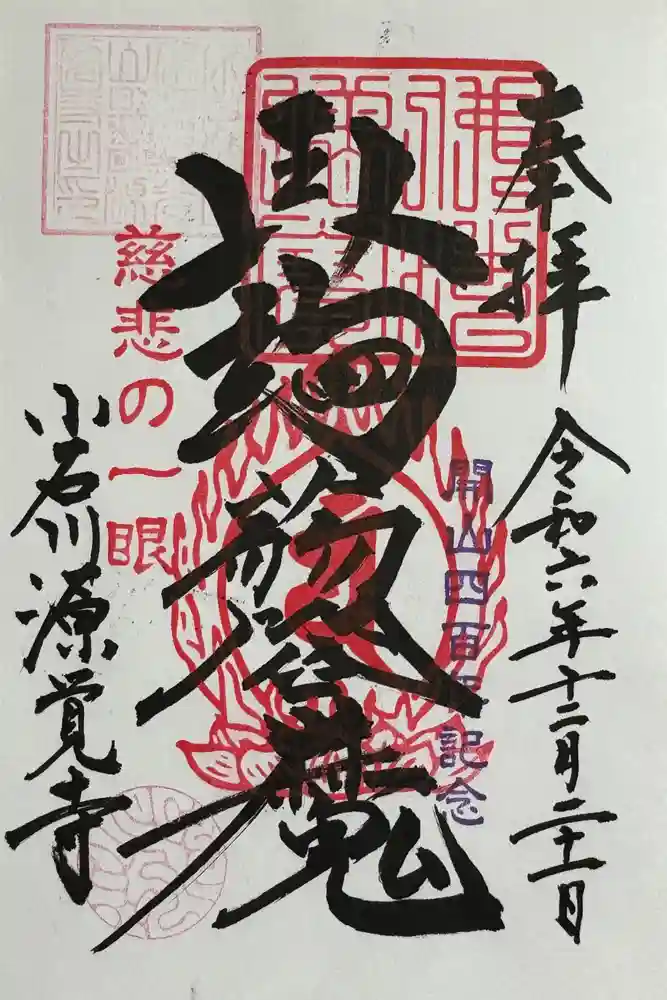 奉拝
令和六年十二月二十一日
開山四百年記念
蒟蒻閻魔
慈悲の一眼
小石川源覚寺